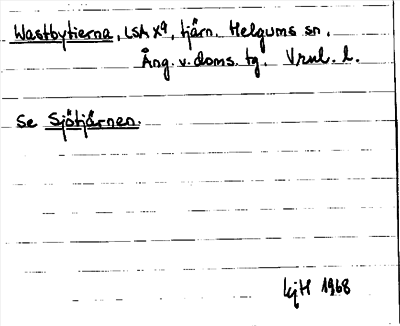 Wastbytierna, LSA X9, tjärn. Helgums sn.
Ång. v. doms. tg. Vrml. l.
Se Sjötjärnen.
kjH 1968